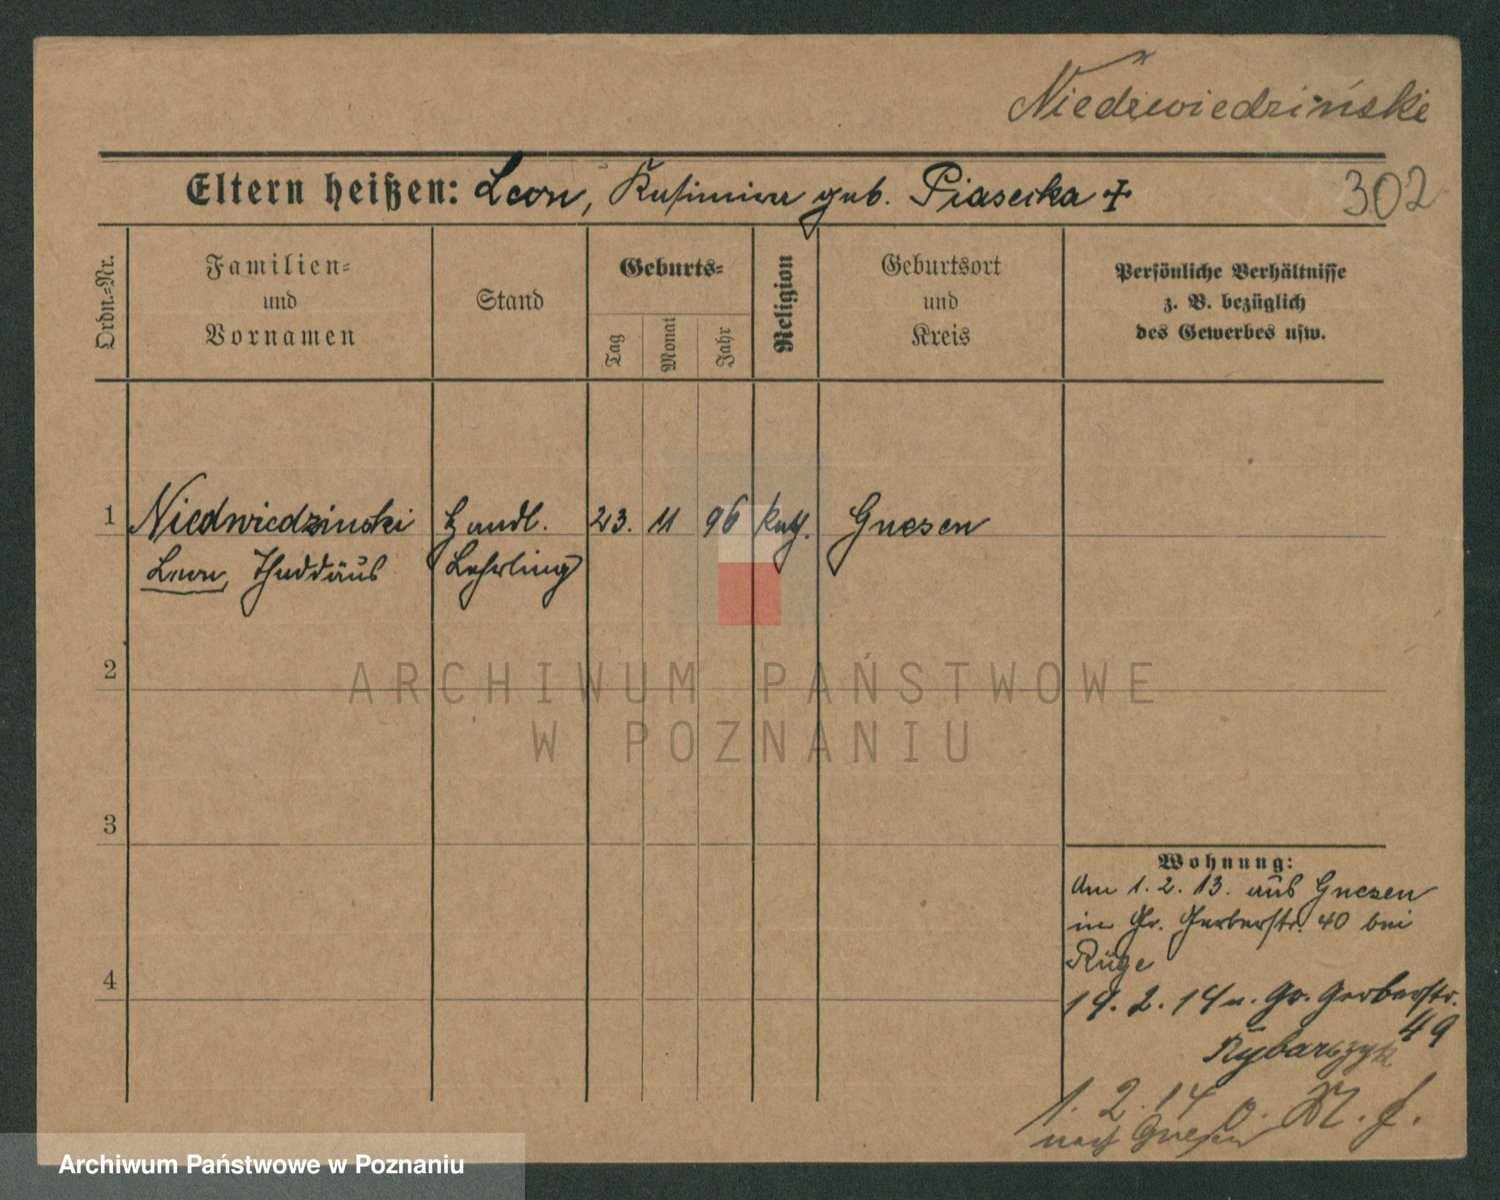 Niedźwiedziński
Eltern heißen: Leon, Kasimira geb. Piasecka +
302
Ordn.=Nr.
Familien=
und
Vornamen
Stand
Geburts=
Tag
Monat
Jahr
Religion
Geburtsort
und
Kreis
Persönliche Verhältnisse
z. B. bezüglich
des Gewerbes usw.
1 Niedwiedzinski Handl. 23. 11 96 kath. Gnesen
Leon, Thaddäus Lehrling
2
ARCHIWUM PAŃSTWOWE
W POZNANIU
3
Wohnung:
Am 1. 2. 13. aus Gnesen
in Gr. Gerberstr. 40 bei
Rüge
4
2. 14 n. Gr. Gerberstr.
49
Rybarczyk
1. 2. 14
nach Gnesen
Archiwum Państwowe w Poznaniu